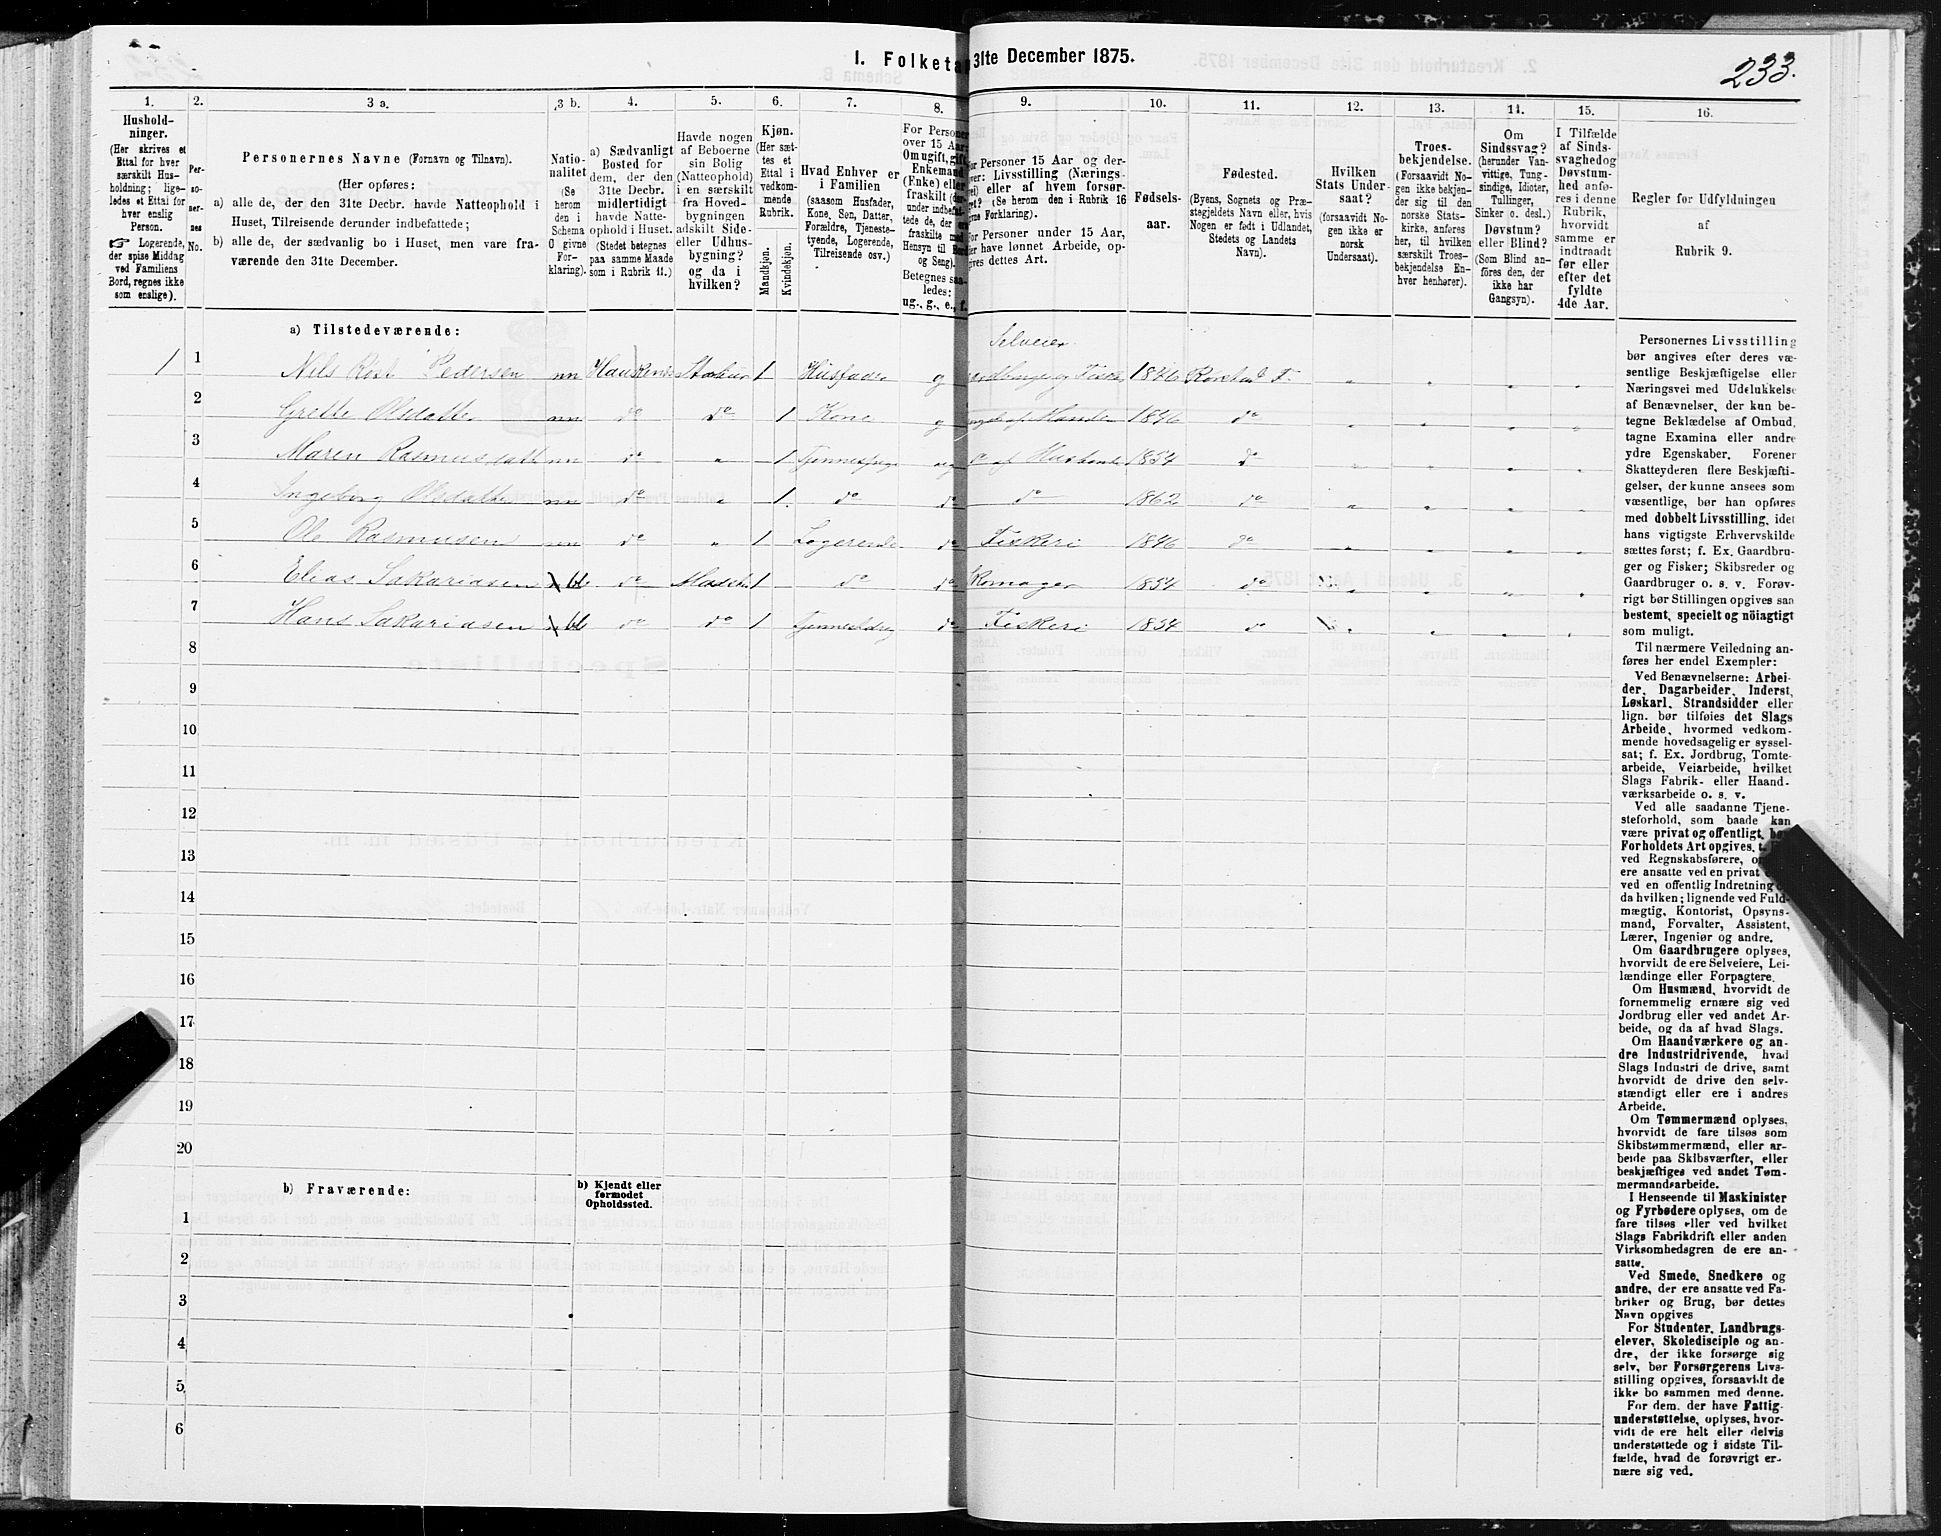 I. Folketa 31te December 1875.
233.
1. 2. 3 a. 3 b. 4. 5. 6. 7. 8. 9. 10. 11. 12. 13. 14. 15. 16.
Hushold-
ninger.
(Her skrives et
Ettal for hver
særskilt Hus-
holdning; lige-
ledes et Ettal for
hver enslig
Person.
☞ Logerende,
der spise Middag
ved Familiens
Bord, regnes ikke
som enslige).
Per-
so-
ner-
nes
No.
Personernes Navne (Fornavn og Tilnavn).
(Her opføres:
a) alle de, der den 31te Decbr. havde Natteophold i
Huset, Tilreisende derunder indbefattede;
b) alle de, der sædvanlig bo i Huset, men vare fra-
værende den 31te December.
Natio-
nalitet
(Se
herom
den i
Schema
O givne
For-
klaring).
a) Sædvanligt
Bosted for
dem, der den
31te Decbr.
midlertidigt
havde Natte-
ophold i Huset.
(Stedet betegnes
paa samme Maade
som i Rubrik 11.)
Havde nogen
af Beboerne
sin Bolig
(Natteophold)
i en særskilt
fra Hoved-
bygningen
adskilt Side-
eller Udhus-
bygning?
og da i
hvilken?
Kjøn.
(Her sæt-
tes et
Ettal i
vedkom-
mende
Rubrik.
Mandkjøn.
Kvindekjøn.
Hvad Enhver er
i Familien
(saasom Husfader,
Kone, Søn, Datter,
Forældre, Tjeneste-
tyende, Logerende,
Tilreisende osv.)
For Persone
over 15 Aar
Om ugift, gift
Enkemand
(Enke) eller
fraskilt (der-
under indbefat-
tede de, der er
fraskilte med
Hensyn til Bord
og Seng).
Betegnes saa-
ledes:
ug., g., e., f.
For Personer 15 Aar og der-
over: Livsstilling (Nærings-
vei) eller af hvem forsør-
get? (Se herom den i Rubrik 16
givne Forklaring).
For Personer under 15 Aar,
der have lønnet Arbeide, op-
gives dettes Art.
Fødsels-
aar.
Fødested.
(Byens, Sognets og Præ-
stegjeldets Navn eller, hvis
Nogen er født i Udlandet,
Stedets og Landets
Navn).
Hvilken
Stats Under-
saat?
(forsaavidt No-
gen ikke er
norsk
Undersaat).
Troes-
bekjendelse.
(Forsaavidt No-
gen ikke bekjen-
der sig til den
norske Stats-
kirke, anføres
her, til hvilken
særskilt Troes-
bekjendelse En-
hver henhører).
Om
Sindssvag?
(herunder Van-
vittige, Tung-
sindige, Idioter,
Tullinger,
Sinker o. desl.)
Døvstum?
eller Blind?
(Som Blind an-
föres den, der
ikke har
Gangsyn).
I Tilfælde
af Sinds-
svaghedog
Døvstum-
hed anfø-
res i denne
Rubrik,
hvorvidt
samme er
indtraadt
før eller
efter det
fyldte
4de Aar.
Regler for Udfyldningen
af
Rubrik 9.
a) Tilstedeværende:
Selveier
1 1 Nils Rost Pedersen nn Hauknes Stabur 1 Husfader g Gaardbruger og Fisker 1846 F.
2 Grette Olsdatter nn do do 1 Kone g 1846 do
3 Maren Rasmusdatter nn do " 1 Tjennestpige ug 1854 do
4 Ingeborg Olsdatter nn do " 1 do do do 1862 do
5 Ole Rasmusen nn do " 1 Logerende do Fiskeri 1846 do
6 Elias Sakariasen bl do 1 do do Skomager 1854 do
7 Hans Sakariasen bl do do 1 Tjennestdreng do Fiskeri 1854 do
8
9
10
11
12
13
14
15
16
17
18
19
20
b) Fraværende:
b) Kjendt eller
formodet
Opholdssted.
1
2
3
4
5
6
Personernes Livsstilling
bør angives efter deres væ-
sentlige Beskjæftigelse eller
Næringsvei med Udelukkelse
af Benævnelser, der kun be-
tegne Beklædelse af Ombud,
tagne Examina eller andre
ydre Egenskaber. Forener
Skatteyderen flere Beskjæfti-
gelser, der kunne ansees som
væsentlige, bør han opføres
med dobbelt Livsstilling, idet
hans vigtigste Erhvervskilde
sættes først; f. Ex. Gaardbru-
ger og Fisker; Skibsreder og
Gaardbruger o. s. v. Forøv-
rigt bør Stillingen opgives saa
bestemt, specielt og nöiagtigt
som muligt.
Til nærmere Veiledning an-
føres her endel Exempler:
Ved Benævnelserne: Arbei-
der, Dagarbeider, Inderst,
Løskarl, Strandsidder eller
lign. bør tilføies det Slags
Arbeide, hvormed vedkom-
mende hovedsagelig er syssel-
sat; f. Ex. Jordbrug, Tomte-
arbeide, Veiarbeide, hvilket
Slags Fabrik- eller Haand-
værksarbeide o. s. v.
Ved alle saadanne Tjene-
steforhold, som baade kan
være privat og offentligt, bør
Forholdets Art opgives,
ved Regnskabsførere,
ere ansatte ved en privat
ved en offentlig Indretning
da hvilken; lignende ved Fuld-
mægtig, Kontorist, Opsyns-
mand, Forvalter, Assistent,
Lærer, Ingeniør og andre.
Om Gaardbrugere oplyses,
hvorvidt de ere Selveiere, Lei-
lændinge eller Forpagtere.
Om Husmænd, hvorvidt de
fornemmelig ernære sig ved
Jordbrug eller ved andet Ar-
beide, og da af hvad Slags.
Om Haandværkere og an-
dre Industridrivende, hvad
Slags Industri de drive, samt
hvorvidt de drive den selv-
stændigt eller ere i andres
Arbeide.
Om Tømmermænd oplyses,
hvorvidt de fare tilsøs som
Skibstømmermænd, eller ar-
beide paa Skibsværfter, eller
beskjæftiges ved andet Tøm-
mermandsarbeide.
I Henseende til Maskinister
og Fyrbødere oplyses, om de
fare tilsøs eller ved hvilket
Slags Fabrikdrift eller anden
Virksomhedsgren de ere an-
satte.
Ved Smede, Snedkere og
andre, der ere ansatte ved Fa-
briker og Brug, bør dettes
Navn opgives
For Studenter, Landbrugs-
elever, Skoledisciple og an-
dre, der ikke forsørge sig
selv, bør Forsørgerens Livs-
stilling opgives, forsaavidt de
ikke bo sammen med denne.
For dem, der have Fattig-
understøttelse, oplyses, hvor-
vidt de ere helt eller delvis
understøttede og i sidste Til-
fælde, hvad de forøvrigt er-
nære sig ved.